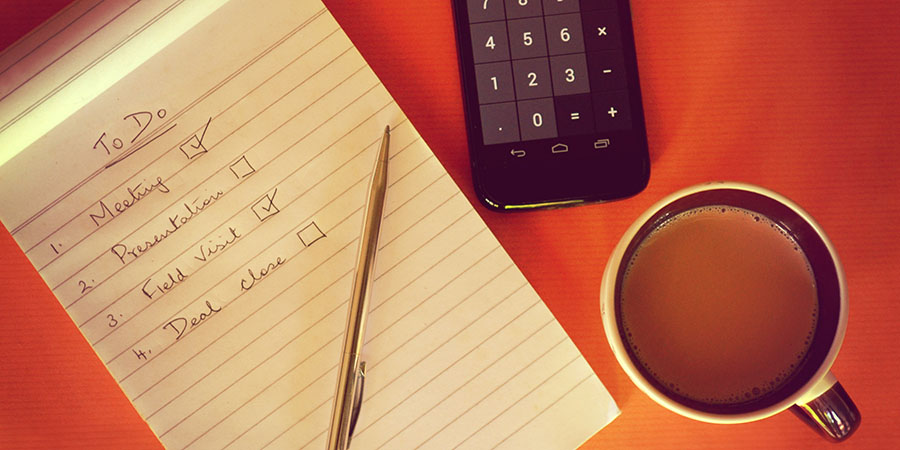 To Do
1. Meeting ☑
2. Presentation ☐
3. Field Visit ☑
4. Deal close ☐
7 8 9
4 5 6 ×
1 2 3 -
. 0 = +